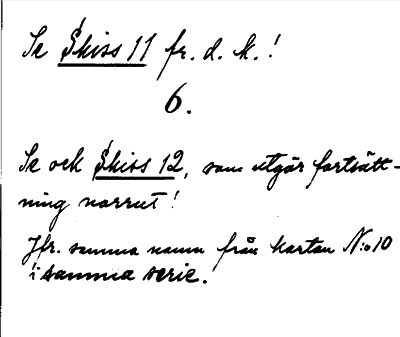 Se Skiss 11 fr. d. k.!
6.
Se ock Skiss 12, som utgör fortsätt-
ning norrut!
Jfr. samma namn från kartan N:o 10
i samma serie.